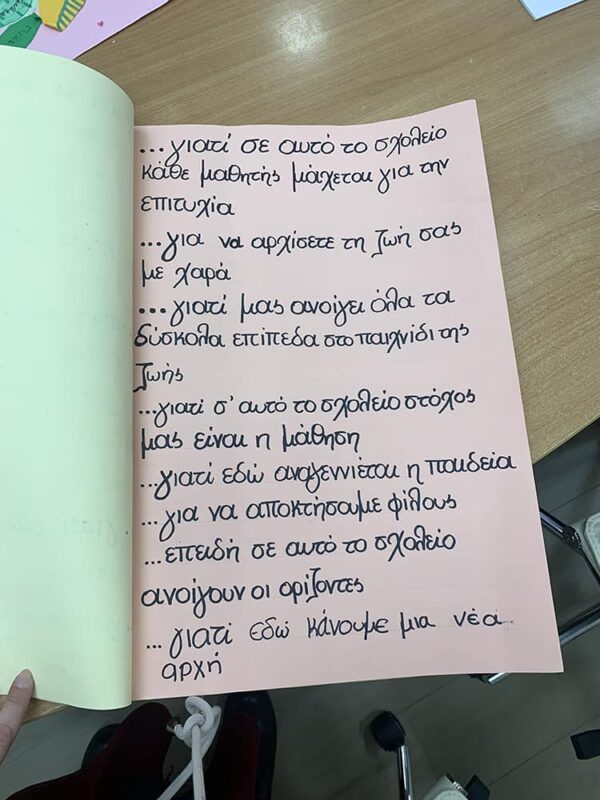 ...γιατί σε αυτό το σχολείο
κάθε μαθητής μάχεται για την
επιτυχία
...για να αρχίσετε τη ζωή σας
με χαρά
...γιατί μας ανοίγει όλα τα
δύσκολα επίπεδα στο παιχνίδι της
ζωής
...γιατί σ' αυτό το σχολείο στόχος
μας είναι η μάθηση
...γιατί εδώ αναγεννιέται η παιδεία
...για να αποκτήσουμε φίλους
...επειδή σε αυτό το σχολείο
ανοίγουν οι ορίζοντες
...γιατί εδώ κάνουμε μια νέα
αρχή